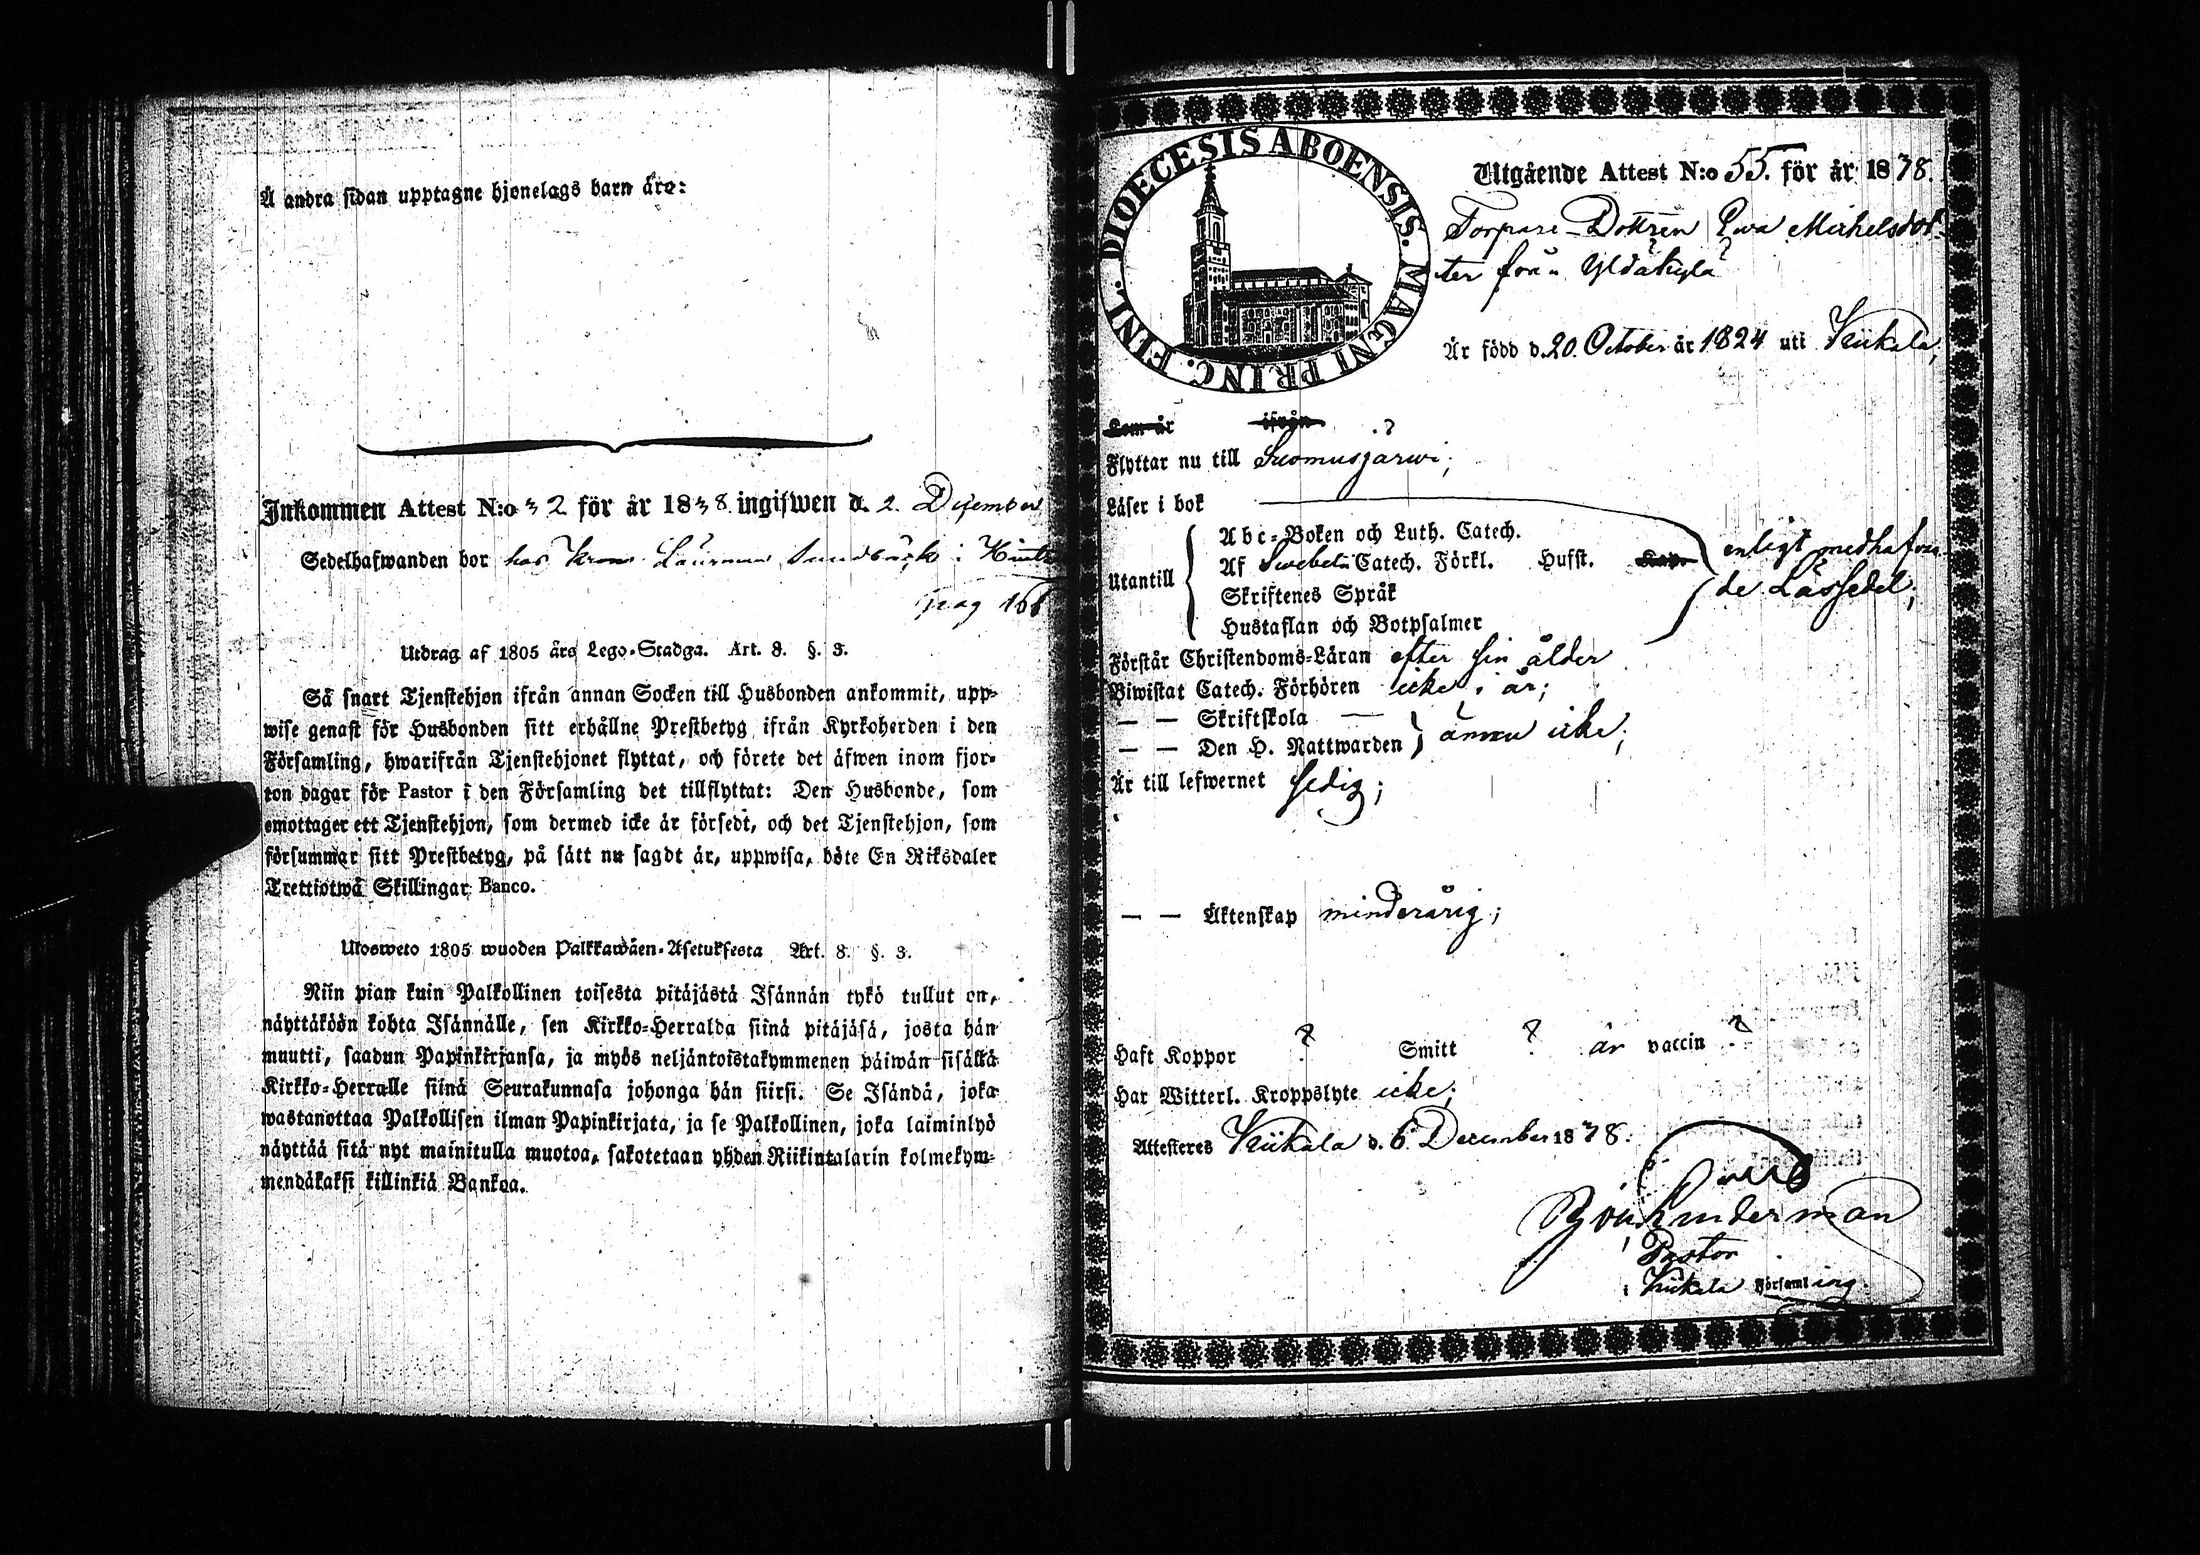 Å andra sidan upptagne hjonelags barn äro:
Inkommen Attest N:o 32 för år 1838 ingifwen d. 2. December
Sedelhafwanden bor hos i
pag
Utdrag af 1805 års Lego-Stadga. Art. 8. §. 3.
Så snart Tjenstehjon ifrån annan Socken till Husbonden ankommit, upp-
wise genast för Husbonden sitt erhållne Prestbetyg ifrån Kyrkoherden i den
Församling, hwarifrån Tjenstehjonet flyttat, och förete det äfwen inom fjor-
ton dagar för Pastor i den Församling det tillflyttat: Den Husbonde, som
emottager ett Tjenstehjon, som dermed icke är försedt, och det Tjenstehjon, som
försummar sitt Prestbetyg, på sätt nu sagdt är, uppwisa, böte En Riksdaler
Trettiotwå Skillingar Banco.
Ulosweto 1805 wuoden Palkkawäen-Asetuksesta Art. 8. §. 3.
Niin pian kuin Palkollinen toisesta pitäjästä Isännän tykö tullut on,
näyttäköön kohta Isännälle, sen Kirkko-Herralda siinä pitäjäsä, josta hän
muutti, saadun Papinkirjansa, ja myös neljäntoistakymmenen päiwän sisällä
Kirkko-Herralle siinä Seurakunnasa johonga hän siirsi. Se Isändä, joka
wastanottaa Palkollisen ilman Papinkirjata, ja se Palkollinen, joka laiminlyö
näyttää sitä nyt mainitulla muotoa, sakotetaan yhden Riikintalarin kolmekym-
mendäkaksi killinkiä Bankoa.
DIOECESIS ABOENSIS. MAGNI PRINC. FINL.
Utgående Attest N:o 55. för år 1838.
Torpare-Dottren Ewa Michelsdot-
ter från Yldäkylä
Är född d. 20. October år 1824 uti Kiikala,
Som är ifrån
Flyttar nu till Suomusjärwi;
Läser i bok
Utantill
Abc-Boken och Luth. Catech.
Af Swebelii Catech. Förkl. Hufst.
Skriftenes Språk
Hustaflan och Botpsalmer
enligt medhafwan-
de Läs sedel;
Förstår Christendoms-Läran efter sin ålder
Biwistat Catech. Förhören icke i år;
— — Skriftskola —
— — Den H. Nattwarden ännu icke;
Är till lefwernet sedig;
— — Äktenskap minderårig;
Haft Koppor ? Smitt ? är vaccin ?
Har Witterl. Kroppslyte icke;
Attesteres Kiikala d. 6 December 1838.
Pastor
i Kiikala Församling.